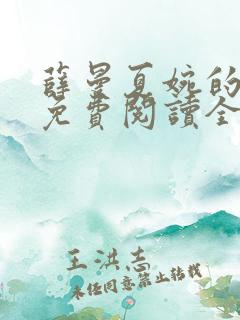 薛曼夏婉的
免費閱讀全
王洪志
未经同意禁止转载